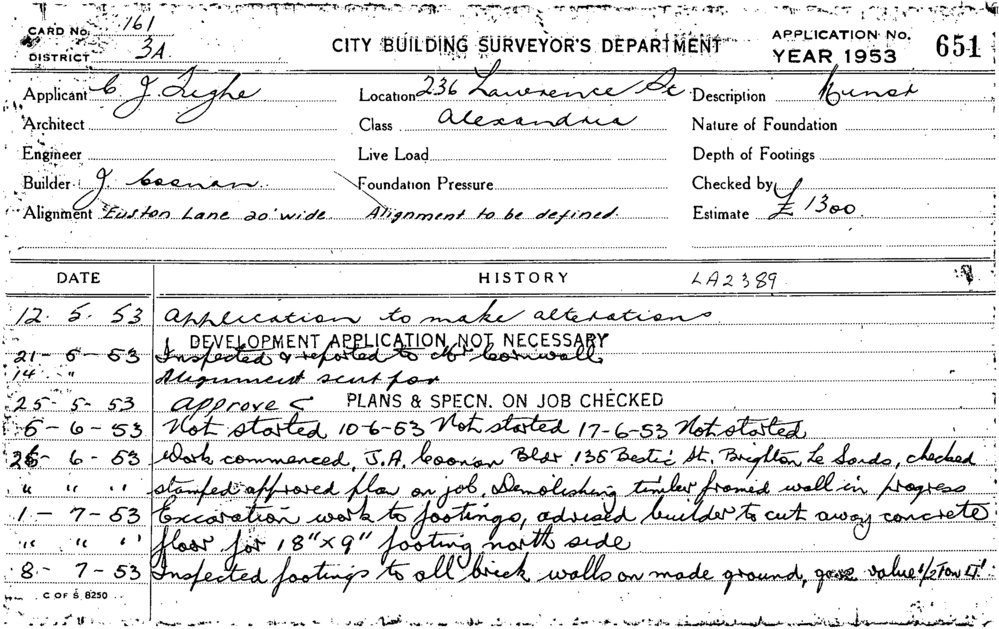 CARD No. 161
DISTRICT 3A
CITY BUILDING SURVEYOR'S DEPARTMENT
APPLICATION No. 651
YEAR 1953
Applicant C J. Tighe Location 236 Lawrence St Description
Architect Class Alexandria Nature of Foundation
Engineer Live Load Depth of Footings
Builder J. Coonan Foundation Pressure Checked by
Alignment Euston Lane 20' wide. Alignment to be defined. Estimate £1300
DATE HISTORY LA2389
12. 5. 53 Application to make alterations
DEVELOPMENT APPLICATION NOT NECESSARY
21-5-53 Inspected & reported to Mr Cornwall
14 " Alignment sent for
25-5-53 Approved PLANS & SPECN. ON JOB CHECKED
5-6-53 Not started 10-6-53 Not started 17-6-53 Not started
26-6-53 Work commenced, J.A. Coonan Bldr. 135 Bestic St. Brighton Le Sands, checked
" " " stamped approved plan on job. Demolishing timber framed wall in progress
1-7-53 Excavation work to footings, advised builder to cut away concrete
" " " floor for 18" x 9" footing north side
8-7-53 Inspected footings to all brick walls on made ground, gave value 1/2 Ton
C OF S. 8250